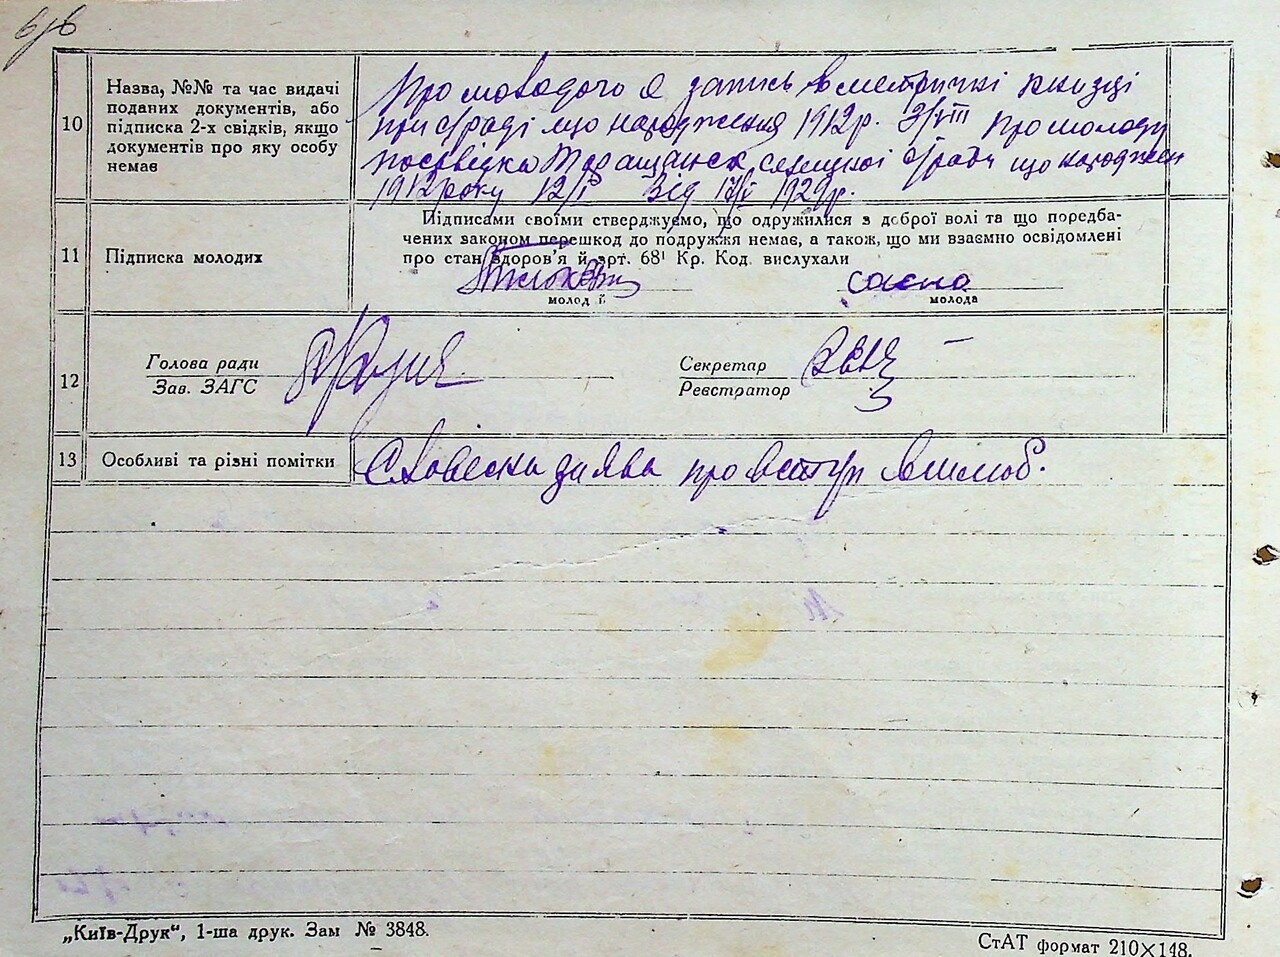 10
Назва, №№ та час видачі
поданих документів, або
підписка 2-х свідків, якщо
документів про яку особу
немає
Про молодого є запись в метричні книзці
при с/раді що народження 1912р. 3/VIII про молоду
посвідка Таращанск. селищної с/ради що народжен
1912 року 12/I від 17/V 1929р.
11
Підписка молодих
Підписами своїми стверджуємо, що одружилися з доброї волі та що поредба-
чених законом перешкод до подружжя немає, а також, що ми взаємно освідомлені
про стан здоров'я й арт. 68¹ Кр. Код. вислухали
молодий
молода
12
Голова ради
Зав. ЗАГС
Секретар
Реєстратор
13
Особливі та різні помітки
Словесна заява про вступ в шлюб.
„Київ-Друк“, 1-ша друк. Зам № 3848.
СтАТ формат 210×148.